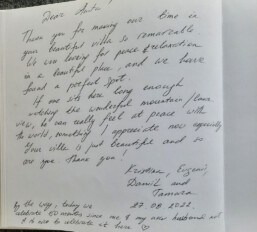 Dear Ante,
Thank you for making our time in
your beautiful villa so remarcable
We are looking for peace & relaxation
in a beautiful place, and we have
found a perfect spot.
If one sits here long enough
watching the wonderful mountain/
view, he can really feel at peace with
the world, something I appreciate now especially
Your villa is just beautiful and so
are you. Thank you!
Kristian, Eugenij,
Daniil and
Tamara
27 08 2022
By the way, today we
celebrate 50 months since me & my new husband
& to celebrate it here